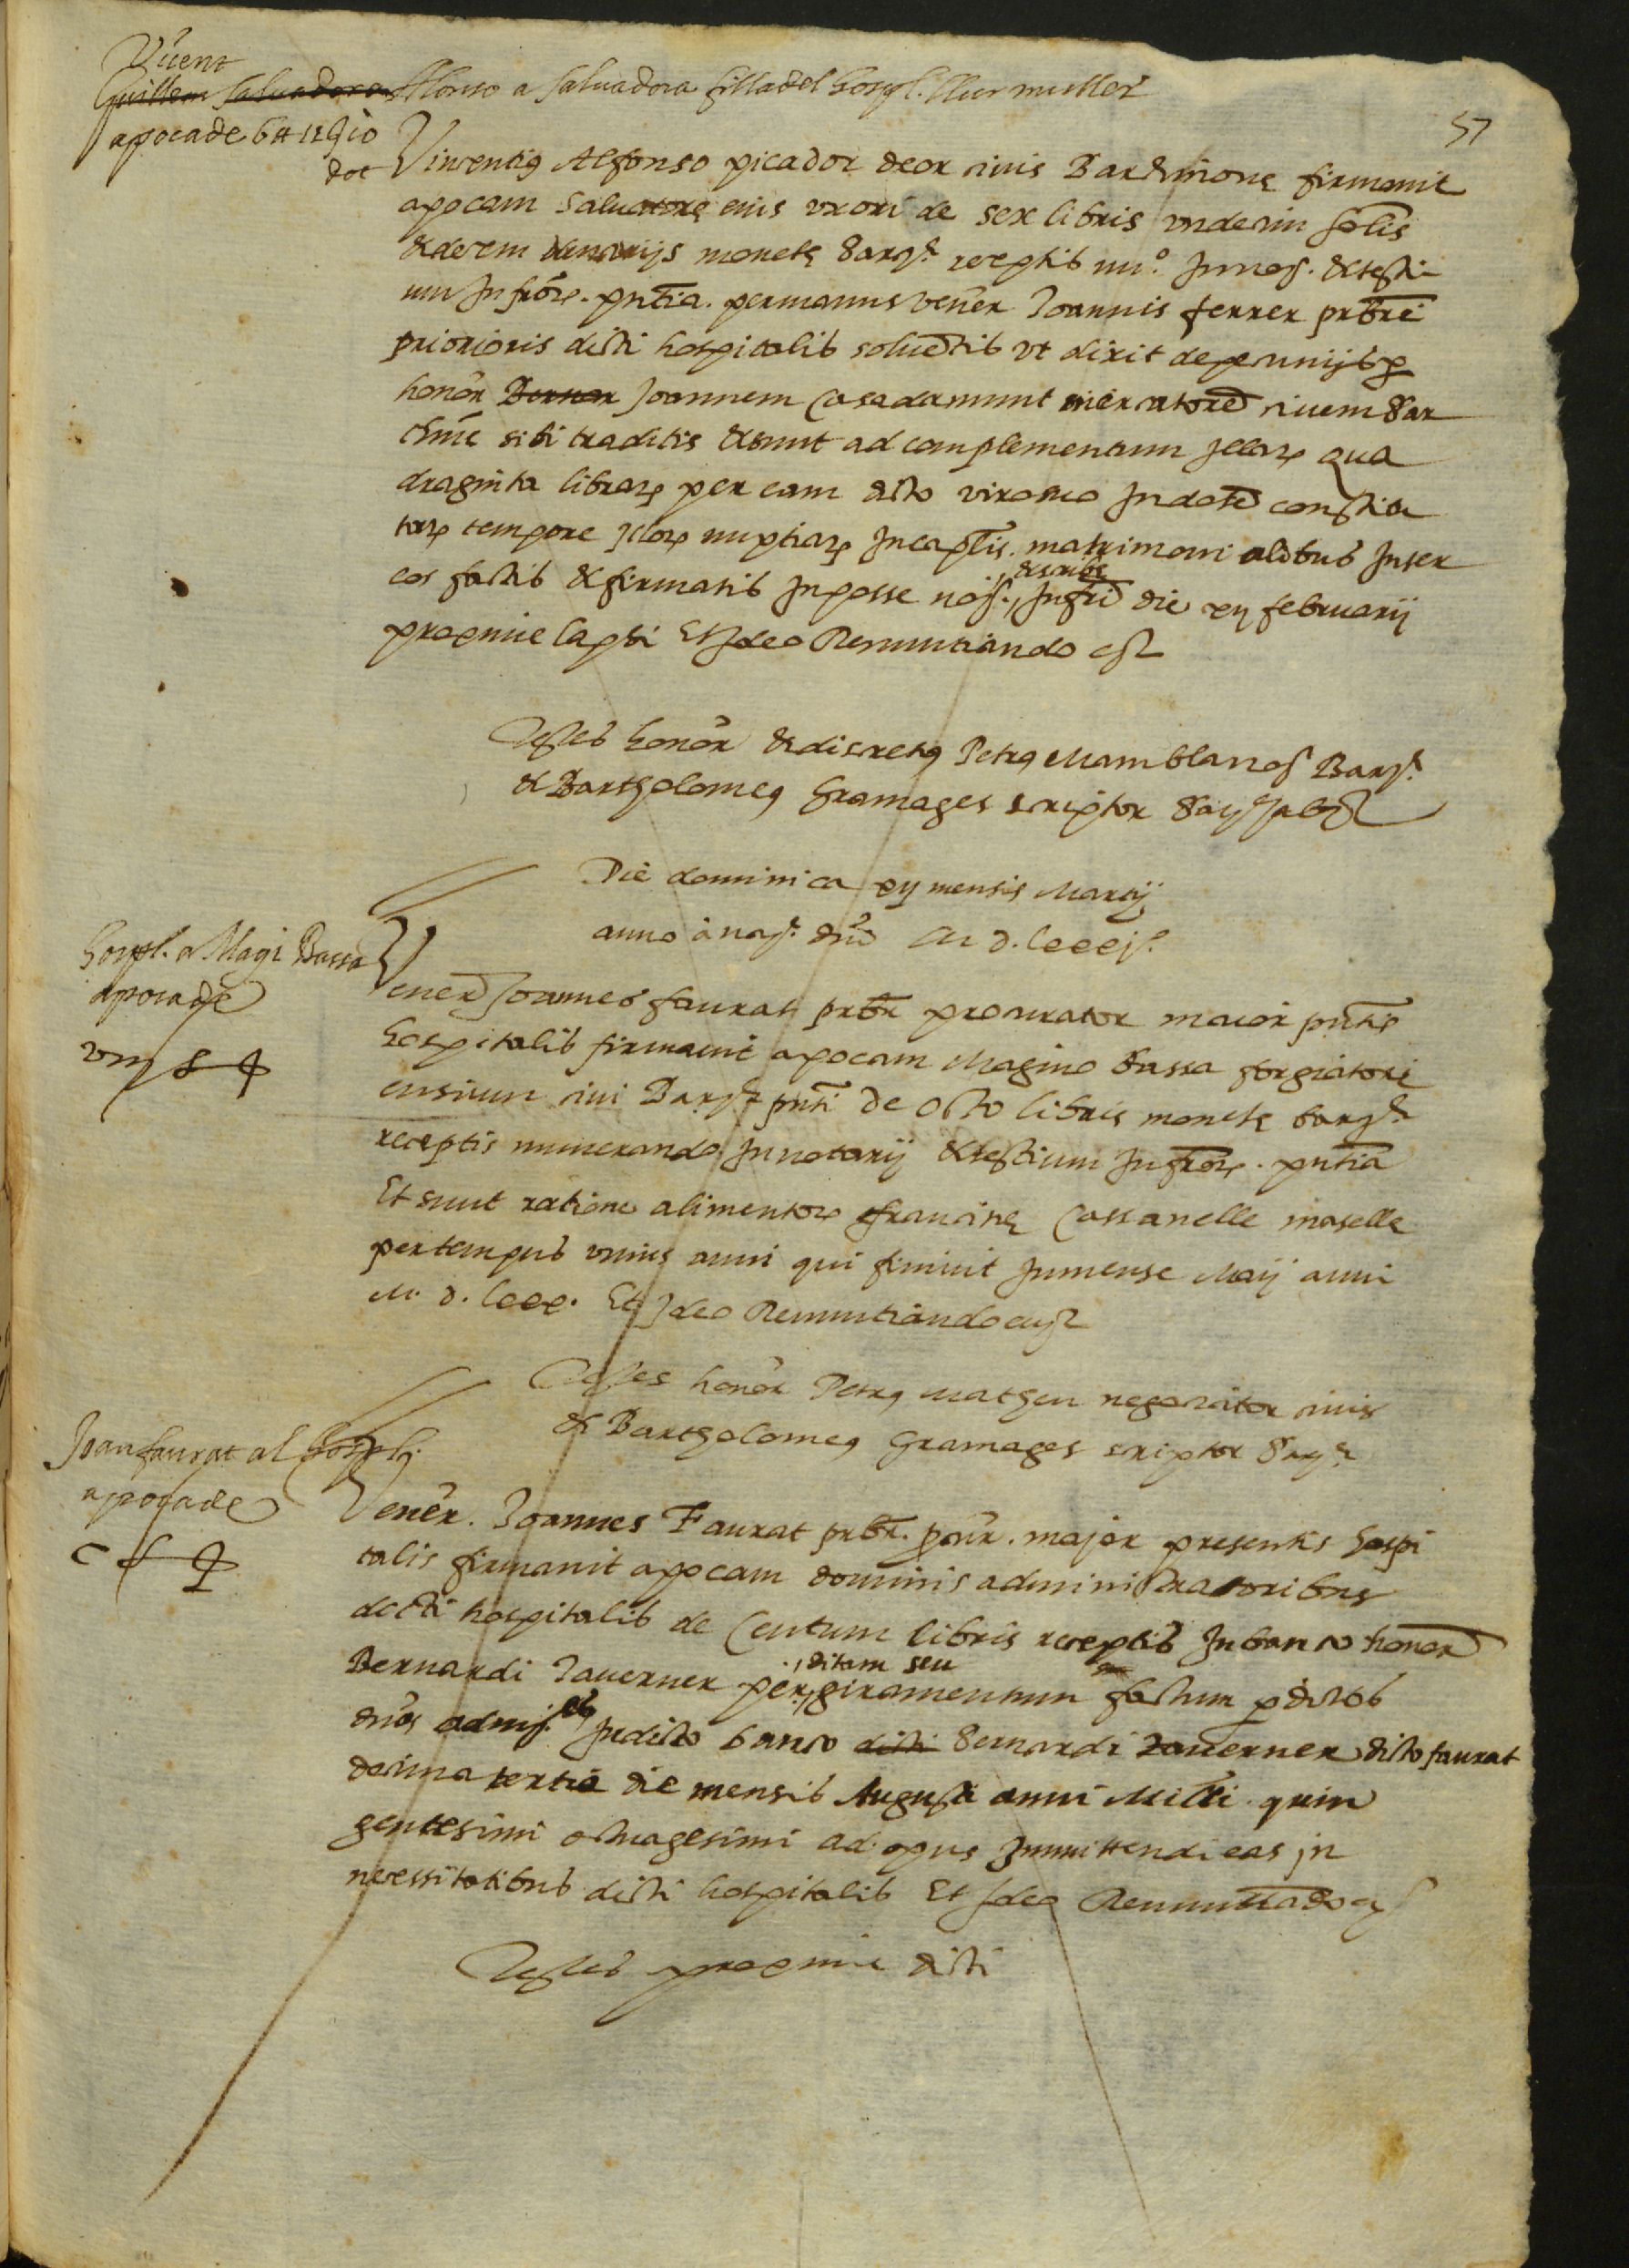 Vicent
Guillem Salvadora Alonso a Salvadora filla del hospl. llur muller
apoca de 6 ll 11 s 10
dot
57
Vincentiꝯ Alfonso picador decor civis Barchinonę firmavit
apocam Salvatorę eius uxori de sex libris undecim solis
& decem denariis monetę barꝯ. receptis nuo. In noſ. & testi
um Infror. pntia. per manus vener Joannis ferrer prbri
prioris dicti hospitalis solventis ut dixit de pecuniis ꝑ
honor Bernar Joannem Casadamunt mercatore civem Bar
chine sibi traditis & sunt ad complementum illar qua
draginta librar per eam dicto viro suo In dote constitu
tar tempore illor nuptiar In captlis. matrimonialibus Inter
eos factis & firmatis In posse noſ. & scribe Infri die xij februarij
proxime lapsi Et Ideo Renuntiando &
Testes honor & discretꝯ Petrꝯ Mamblanoſ Barꝯ.
& Bartholomeꝯ Gramages scriptor Barꝯ
Die dominica xij mensis Martij
anno a natt. dni M. D. lxxxjo.
Hospl. a Magi Bassa
apoca de
viij ll
Vener Joannes faurat prbr procurator maior pntis
hospitalis firmavit apocam Magino Bassa forgiatori
ensium civi Barꝯ pnti de octo libris monetę barꝯ.
receptis numerando In notarij & testium Infror. pntia
Et sunt ratione alimentor francinę Cassanelle
per tempus unius anni qui finivit In mense Maij anni
M. D. lxxx. Et Ideo Renuntiando &
Testes honor Petrꝯ Matheu negociator civis
& Bartholomeꝯ Gramages scriptor Barꝯ.
Joan faurat al hospl.
apoca de
C ll
Vener. Joannes Faurat prbr. pour. major presentis hospi
talis firmavit apocam dominis administratoribus
dicti hospitalis de Centum libris receptis In banco honor
Bernardi Taverner per ditam seu giramentum factum ꝑ dictos
dnos admi. In dicto banco dicti Bernardi Taverner dicto faurat
decima tertia die mensis Augusti anni Milli quin
gentesimi octuagesimi ad opus Immittendi eas in
necessitatibus dicti hospitalis Et Ideo Renuntiado &
Testes proxime dicti